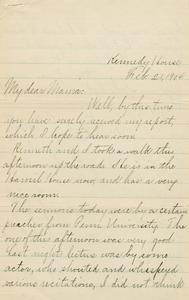 Kennedy House
Feb. 21, 1904
My dear Mama:
Well, by this time
you have surely received my report,
which I hope to hear soon.
Kenneth and I took a walk this
afternoon up the road. He is in the
Hamill House now, and has a very
nice room.
The sermons today were by a certain
preacher from Penn University. The
one of this afternoon was very good
Last night's lecture was by some
actor, who shouted and whispered
various recitations, I did not think